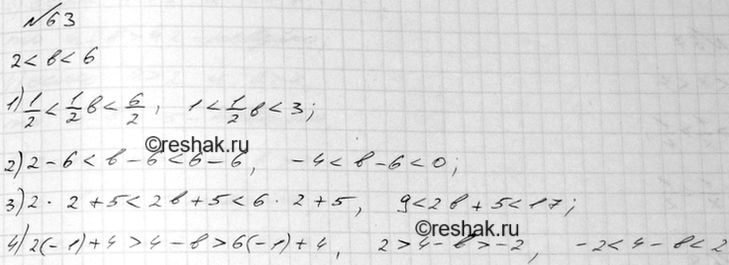 №63
2<в<6
1) 1/2 < 1/2 в < 6/2, 1 < 1/2 в < 3;
©reshak.ru
2) 2-6<в-6<6-6, -4<в-6<0;
3) 2·2+5<2в+5<6·2+5, 9<2в+5<17;
©reshak.ru
4) 2(-1)+4>4-в>6(-1)+4, 2>4-в>-2, -2<4-в<2